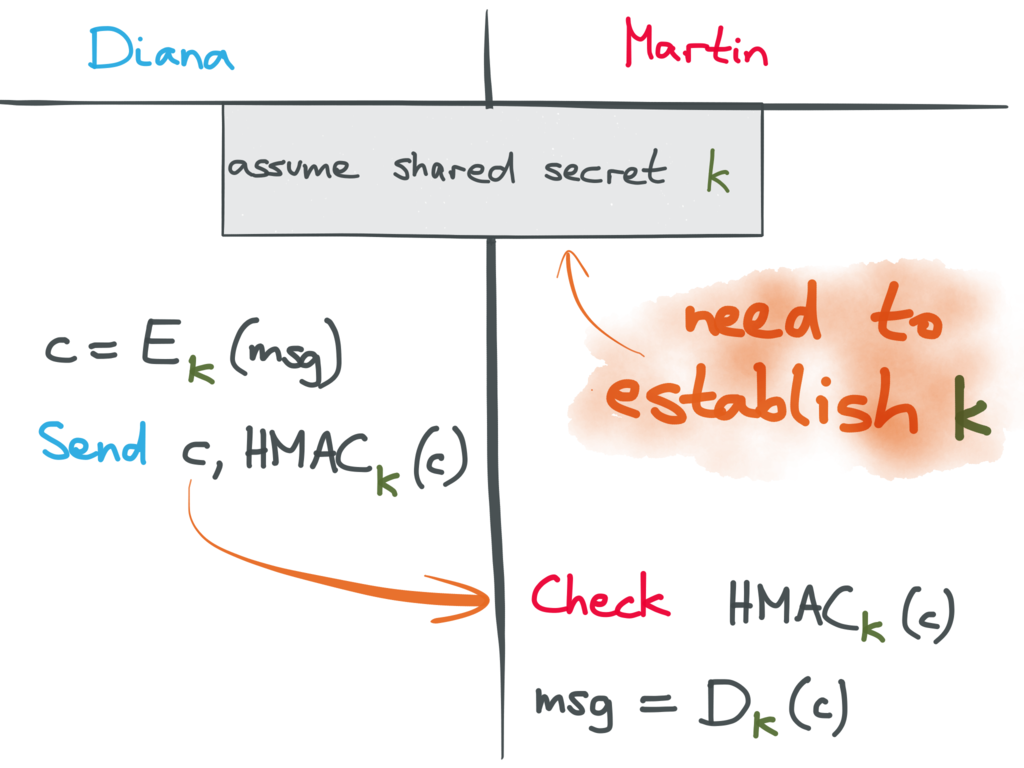 Diana
Martin
assume shared secret k
need to
establish k
c = E_k (msg)
Send c, HMAC_k (c)
Check HMAC_k (c)
msg = D_k (c)